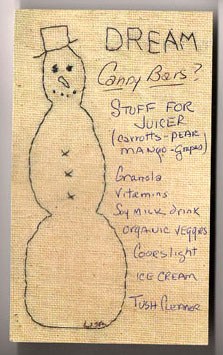 DREAM
Candy Bars?
STUFF FOR
JUICER
(carrotts - PEAR
MANGO - grapes)
Granola
Vitamins
Soy milk drink
ORGANIC VEGGIES
Coors light
ICE CREAM
TUSH CLEANER
LISA